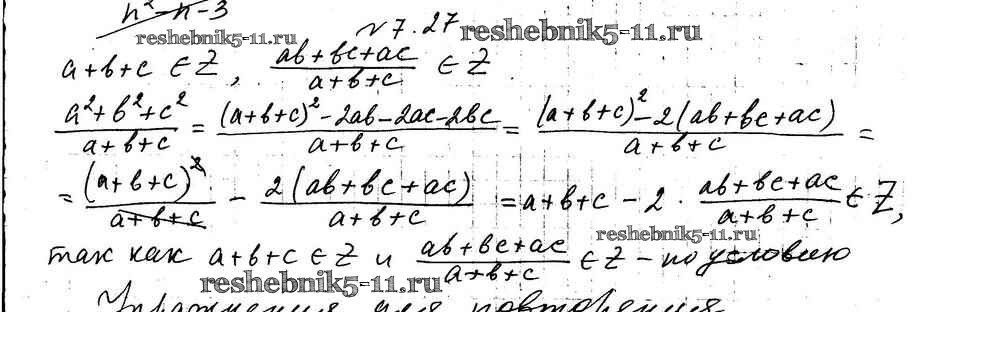 n² - n - 3
№ 7.27 reshebnik5-11.ru
reshebnik5-11.ru
a+b+c ∈ Z, (ab+bc+ac)/(a+b+c) ∈ Z
(a²+b²+c²)/(a+b+c) = ((a+b+c)² - 2ab - 2ac - 2bc)/(a+b+c) = ((a+b+c)² - 2(ab+bc+ac))/(a+b+c) =
= (a+b+c)²/(a+b+c) - 2(ab+bc+ac)/(a+b+c) = a+b+c - 2 · (ab+bc+ac)/(a+b+c) ∈ Z,
reshebnik5-11.ru
так как a+b+c ∈ Z и (ab+bc+ac)/(a+b+c) ∈ Z - по условию
reshebnik5-11.ru
Упражнения для повторения